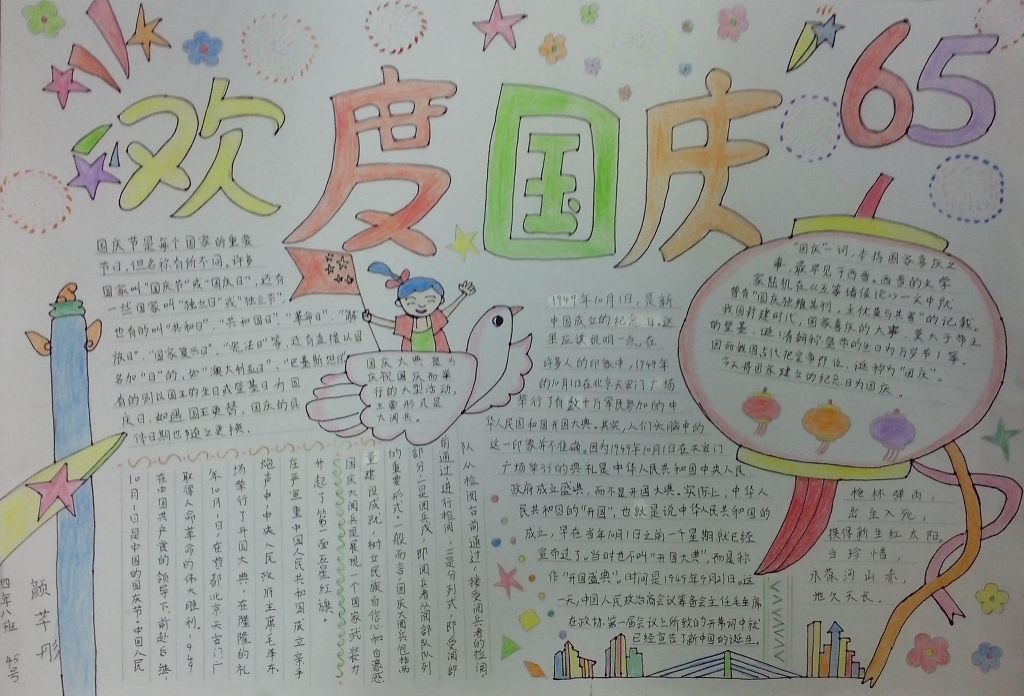 欢度国庆
65
国庆节是每个国家的重要
节日,但名称有所不同。许多
国家叫"国庆节"或"国庆日",还有
一些国家叫"独立日"或"独立节",
也有的叫"共和日"、"共和国日"、"革命日"、"解
放日"、"国家复兴日"、"宪法日"等,还有直接以国
名加"日"的,如"澳大利亚日"、"巴基斯坦日",
有的则以国王的生日或登基日为国
庆日,如遇国王更替,国庆的具
体日期也随之更换.
国庆大典是为
庆祝国庆而举
行的大型活动,
主要形式是
大阅兵。
1949年10月1日,是新
中国成立的纪念日。这
里应该说明一点,在
许多人的印象中,1949年
的10月1日在北京天安门广场
举行了有数十万军民参加的中
华人民共和国开国大典。其实,人们头脑中的
这一印象并不准确。因为1949年10月1日在天安门
广场举行的典礼是中华人民共和国中央人民
政府成立盛典,而不是开国大典。实际上,中华人
民共和国的"开国",也就是说中华人民共和国的
成立,早在当年10月1日之前一个星期就已经
宣布过了。当时也不叫"开国大典",而是称
作"开国盛典"。时间是1949年9月21日。这
一天,中国人民政治商会议筹备会主任毛主席
在政协第一届会议上所致的开幕词中就
已经宣告了新中国的诞生。
"国庆"一词,本指国家喜庆之
事,最早见于西晋。西晋的文学
家陆机在《五等诸侯论》一文中就
曾有"国庆独飨其利,主忧莫与其害"的记载。
我国封建时代,国家喜庆的大事,莫大于帝王
的登基、诞(清朝称皇帝的生日为万岁节)等。
因而我国古代把皇帝即位、诞称为"国庆"。
今天称国家建立的纪念日为国庆。
枪林弹雨,
出生入死,
换得新生红太阳。
当珍惜,
永葆河山赤,
地久天长.
队从检阅台前通过,接受阅兵者的检阅
前通过进行检阅,二是分列式,即受阅部
部分:一是阅兵式,即阅兵者从阅部队队列
的重要形式,一般而言,国庆大阅兵包括两
重建设成就,树立民族自信心和自豪感
国庆大阅兵是展现一个国家武装力
升起了第一面五星红旗。
庄严宣重中国人民共和国成立,亲手
炮声中,中央人民政府主席毛泽东
场举行了开国大典,在隆隆的礼
年10月1日,在首都北京天安门广
取得人命革命的伟大胜利。1949
在中国共产党的领导下,前赴后继
10月1日是中国的国庆节。中国人民
颜芊彤
四年八班 45号